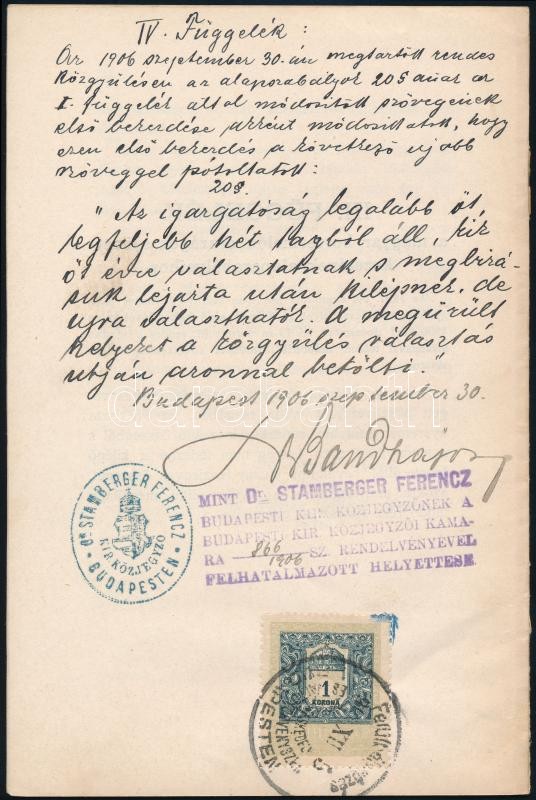 IV. Függelék:
Az 1906 szeptember 30.-án megtartott rendes
közgyűlésen az alapszabályok 20§ának az
I. függelék által módosított szövegének
első bekezdése akként módosíttatott, hogy
ezen első bekezdés a következő ujabb
szöveggel pótoltatott:
20§.
"Az igazgatóság legalább öt,
legfeljebb hét tagból áll, kik
öt évre választatnak s megbizá-
suk lejárta után kilépnek, de
ujra választhatók. A megürült
helyeket a közgyűlés választás
utján azonnal betölti."
Budapest 1906 szeptember 30.
MINT DR. STAMBERGER FERENCZ
BUDAPESTI KIR. KÖZJEGYZŐNEK A
BUDAPESTI KIR. KÖZJEGYZŐI KAMA-
RA 866/1906 SZ. RENDELVÉNYÉVEL
FELHATALMAZOTT HELYETTESE.
DR. STAMBERGER FERENCZ
KIR. KÖZJEGYZŐ
BUDAPESTEN
1
KORONA
XII
darabanth